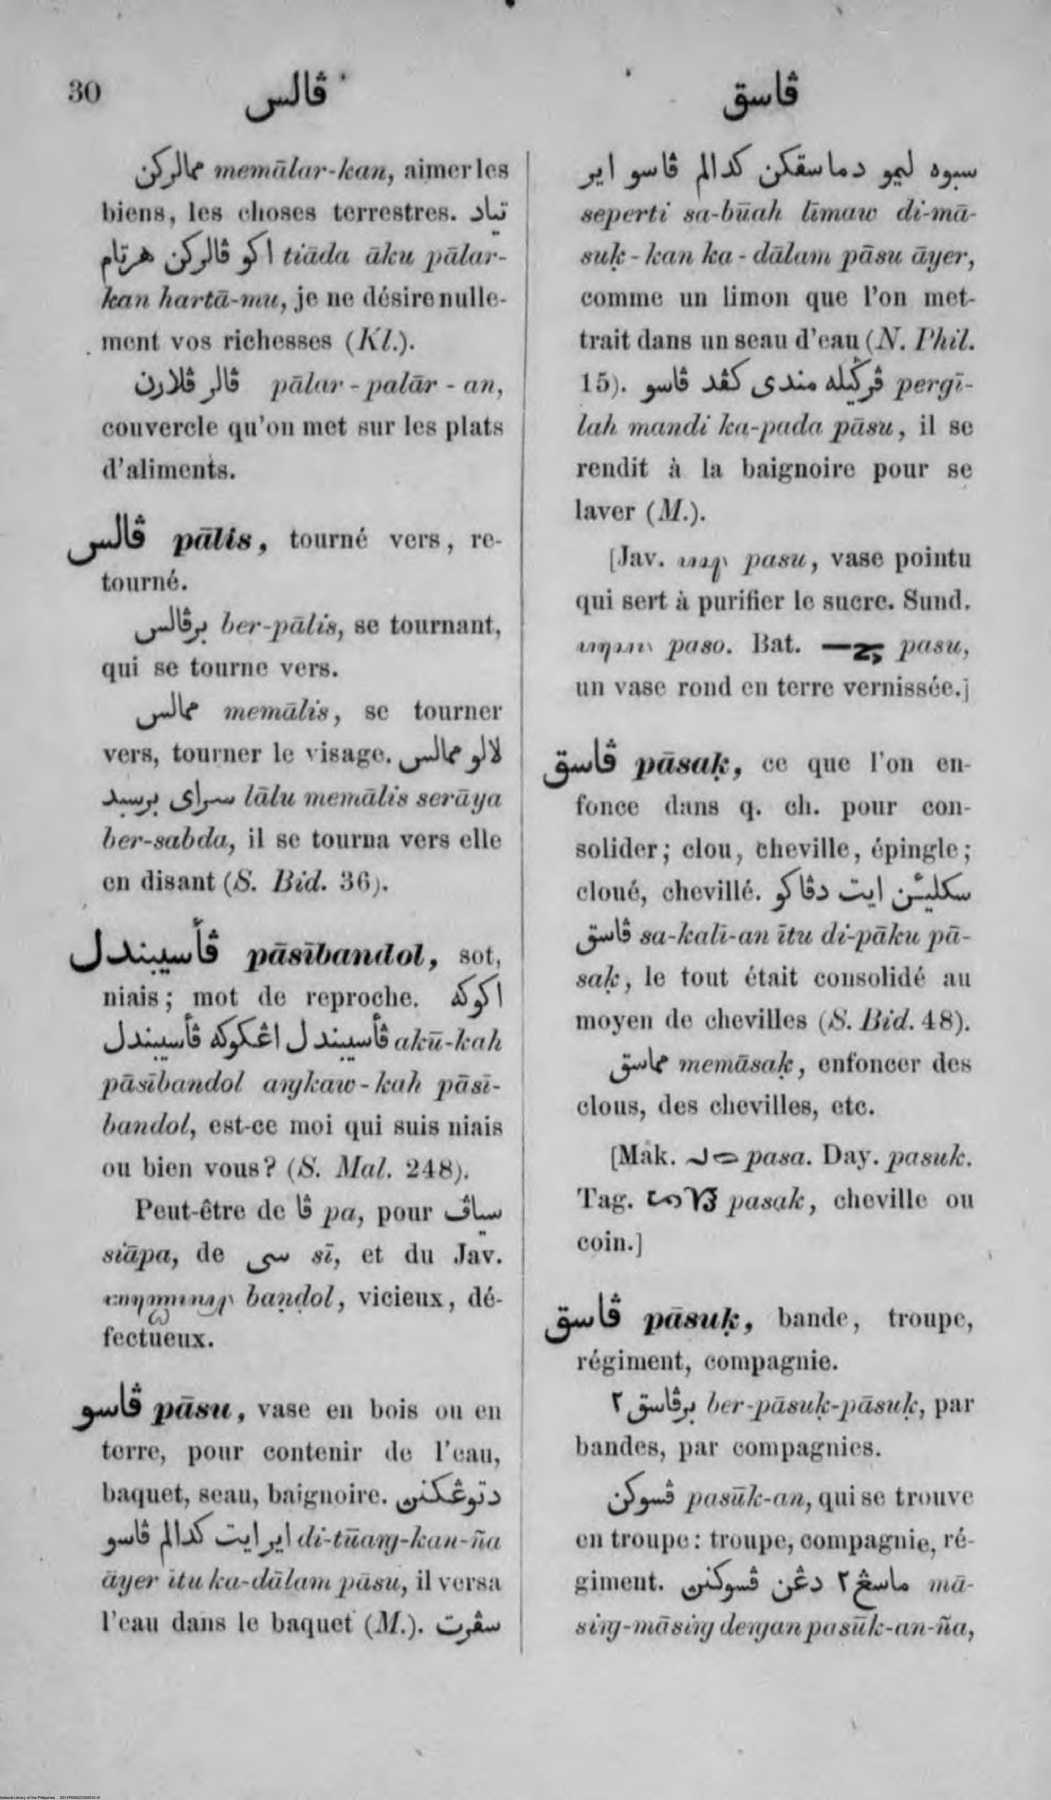 30
ڤالس
ڤاسق
ممالركن memālar-kan, aimer les
biens, les choses terrestres. تياد
اكو ڤالركن هرتام tiāda āku pālar-
kan hartā-mu, je ne désire nulle-
ment vos richesses (Kl.).
ڤالر ڤلارن pālar-palār-an,
couvercle qu'on met sur les plats
d'aliments.
ڤالس pālis, tourné vers, re-
tourné.
برڤالس ber-pālis, se tournant,
qui se tourne vers.
ممالس memālis, se tourner
vers, tourner le visage. لالو ممالس
سراى برسبد lālu memālis serāya
ber-sabda, il se tourna vers elle
en disant (S. Bid. 36).
ڤأسيبندل pāsībandol, sot,
niais; mot de reproche. اكوكه
ڤأسيبندل اڠكوكه ڤأسيبندل akū-kah
pāsībandol aŋkaw-kah pāsī-
bandol, est-ce moi qui suis niais
ou bien vous? (S. Mal. 248).
Peut-être de ڤا pa, pour سياڤ
siāpa, de سى sī, et du Jav.
baṇḍol, vicieux, dé-
fectueux.
ڤاسو pāsu, vase en bois ou en
terre, pour contenir de l'eau,
baquet, seau, baignoire. دتوڠكنڽ
اير ايت كدالم ڤاسو di-tūaŋ-kan-ña
āyer ītu ka-dālam pāsu, il versa
l'eau dans le baquet (M.). سڤرت
سبوه ليمو دماسقكن كدالم ڤاسو اير
seperti sa-būah līmaw di-mā-
suḳ-kan ka-dālam pāsu āyer,
comme un limon que l'on met-
trait dans un seau d'eau (N. Phil.
15). ڤرݢيله مندى كڤد ڤاسو pergī-
lah mandi ka-pada pāsu, il se
rendit à la baignoire pour se
laver (M.).
[Jav. pasu, vase pointu
qui sert à purifier le sucre. Sund.
paso. Bat. pasu,
un vase rond en terre vernissée.]
ڤاسق pāsaḳ, ce que l'on en-
fonce dans q. ch. pour con-
solider; clou, cheville, épingle;
cloué, chevillé. سكلين ايت دڤاكو
ڤاسق sa-kalī-an ītu di-pāku pā-
saḳ, le tout était consolidé au
moyen de chevilles (S. Bid. 48).
مماسق memāsaḳ, enfoncer des
clous, des chevilles, etc.
[Mak. pasa. Day. pasuk.
Tag. pasak, cheville ou
coin.]
ڤاسق pāsuḳ, bande, troupe,
régiment, compagnie.
برڤاسق ٢ ber-pāsuḳ-pāsuḳ, par
bandes, par compagnies.
ڤسوكن pasūk-an, qui se trouve
en troupe: troupe, compagnie, ré-
giment. ماسڠ ٢ دڠن ڤسوكنڽ mā-
siŋ-māsiŋ deŋan pasūk-an-ña,